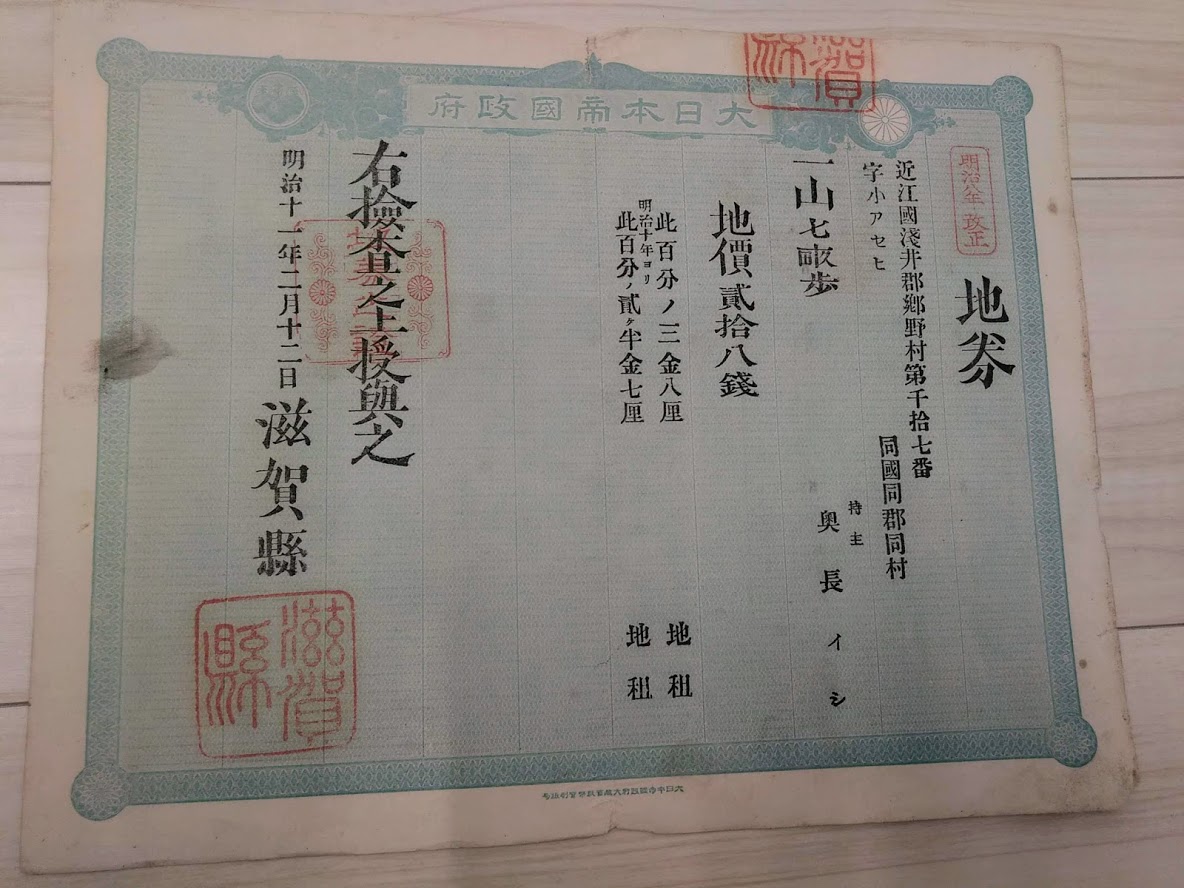 大日本帝國政府
滋賀縣
明治八年改正
地券
近江國淺井郡鄕野村第千拾七番
字小アセヒ
同國同郡同村
持主
奧長イシ
一山七畝歩
地價貳拾八錢
此百分ノ三金八厘 地租
明治十年ヨリ
此百分ノ貳ヶ半金七厘 地租
右撿查之上授與之
明治十一年二月十二日 滋賀縣
滋賀縣